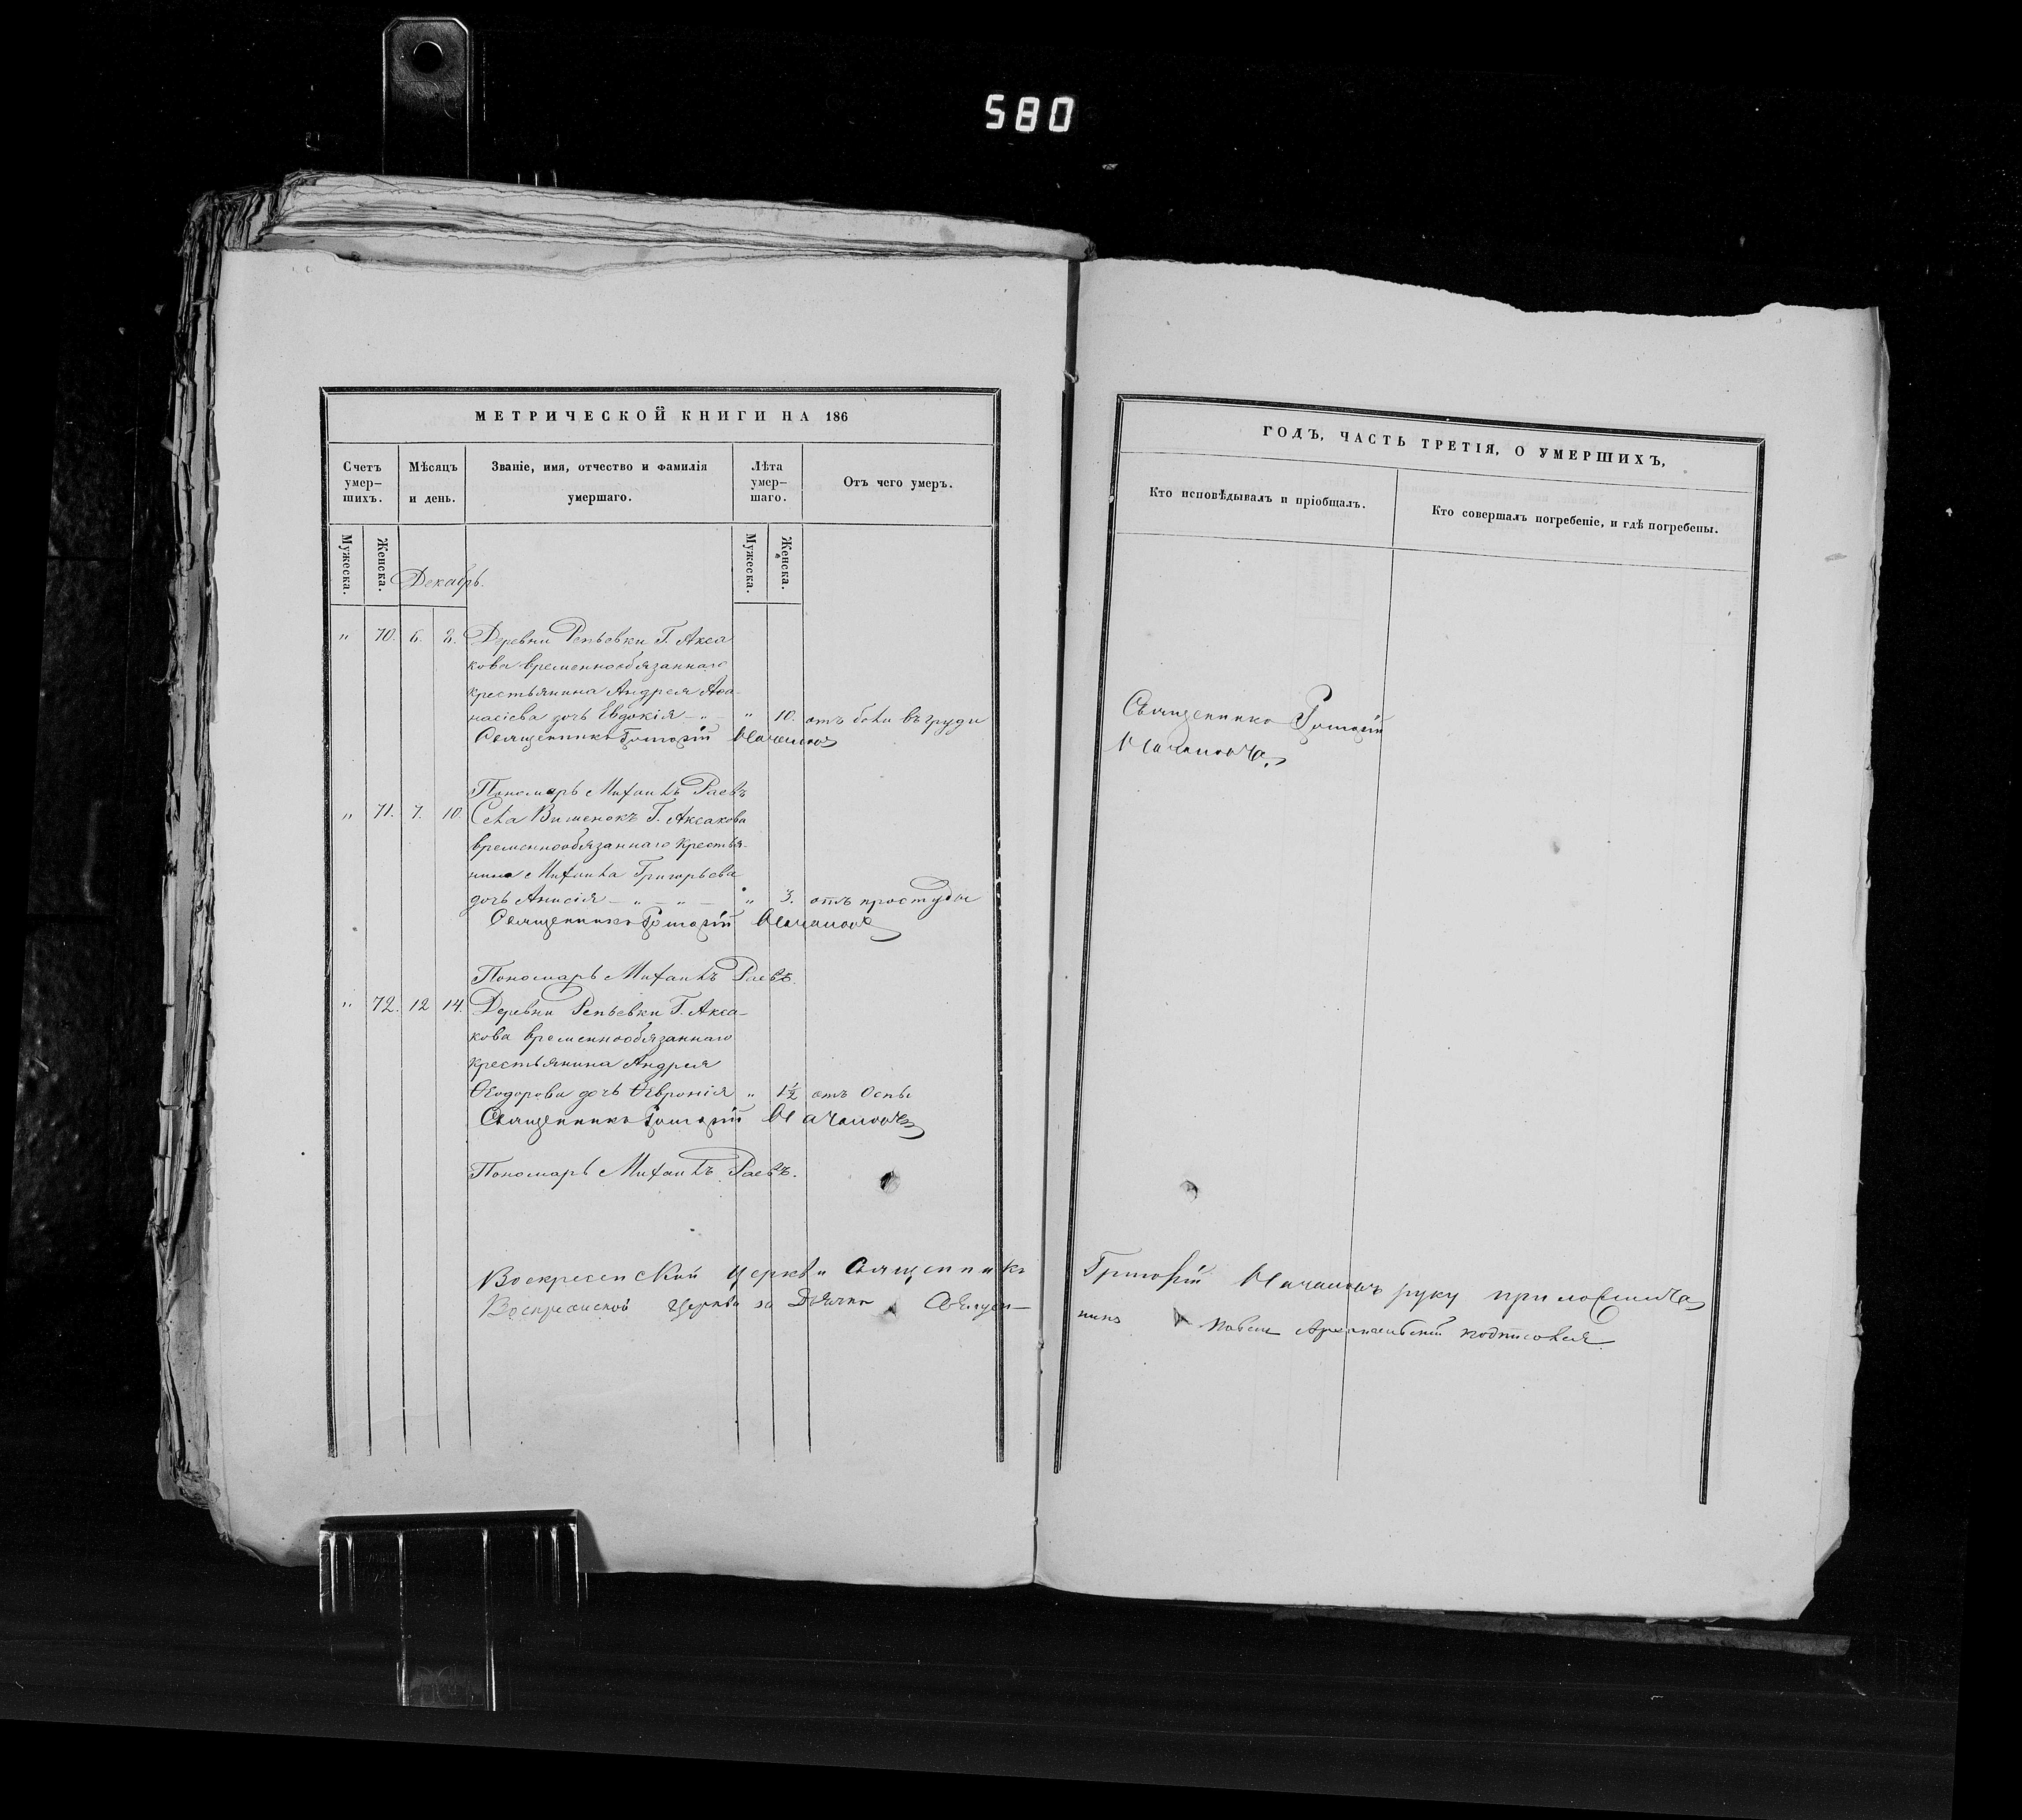 580
МЕТРИЧЕСКОЙ КНИГИ НА 186
Счетъ умер-шихъ.
Мѣсяцъ и день.
Званіе, имя, отчество и фамилія умершаго.
Лѣта умер-шаго.
Отъ чего умеръ.
Мужеска.
Женска.
Мужеска.
Женска.
Декабрь.
" 70. 6. 8. Деревни Репьевки Г. Акса
кова временнообязаннаго
крестьянина Андрея Аѳа-
насіева дочь Евдокія " 10. отъ боли въ груди
Священникъ Григорій
Пономарь Михаилъ Раевъ
" 71. 7. 10. Села Вишенокъ Г. Аксакова
временнообязаннаго крестья-
нина Михаила Григорьева
дочь Анисія " 3. отъ простуды
Священникъ Григорій
Пономарь Михаилъ Раевъ.
" 72. 12 14. Деревни Репьевки Г. Акса-
кова временнообязаннаго
крестьянина Андрея
Ѳеодорова дочь Ѳевронія " 1½ отъ Оспы
Священникъ Григорій
Пономарь Михаилъ Раевъ.
Воскресенской церкви Священникъ
Воскресенской Церкви за Дьячка Священ-
ГОДЪ, ЧАСТЬ ТРЕТІЯ, О УМЕРШИХЪ,
Кто исповѣдывалъ и пріобщалъ.
Кто совершалъ погребеніе, и гдѣ погребены.
Священникъ Григорій
Григорій руку приложилъ
никъ Павелъ Архангельскій подписался